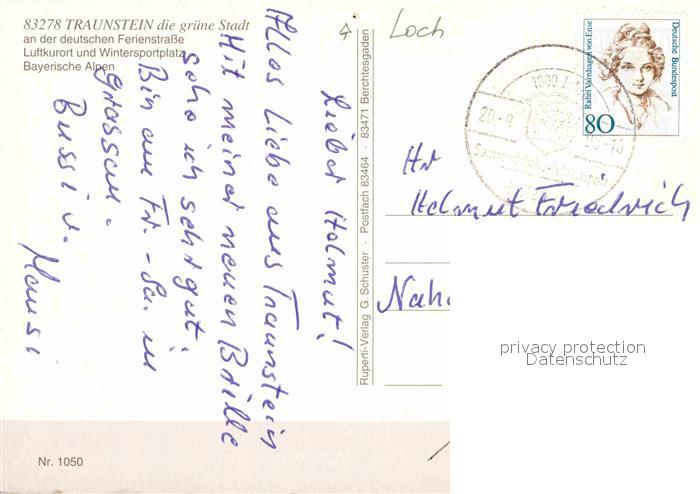 83278 TRAUNSTEIN die grüne Stadt
an der deutschen Ferienstraße
Luftkurort und Wintersportplatz
Bayerische Alpen
Lieber Helmut!
Alles Liebe aus Traunstein
Mit meiner neuen Brille
sehe ich sehr gut.
Bin am Fr. - Sa. in
Grassau.
Bussi v.
Mausi
Nr. 1050
Ruperti-Verlag G. Schuster · Postfach 83464 · 83471 Berchtesgaden
Loch
Rahel Varnhagen von Ense
Deutsche Bundespost
80
Hr
Helmut Friedrich
privacy protection
Datenschutz